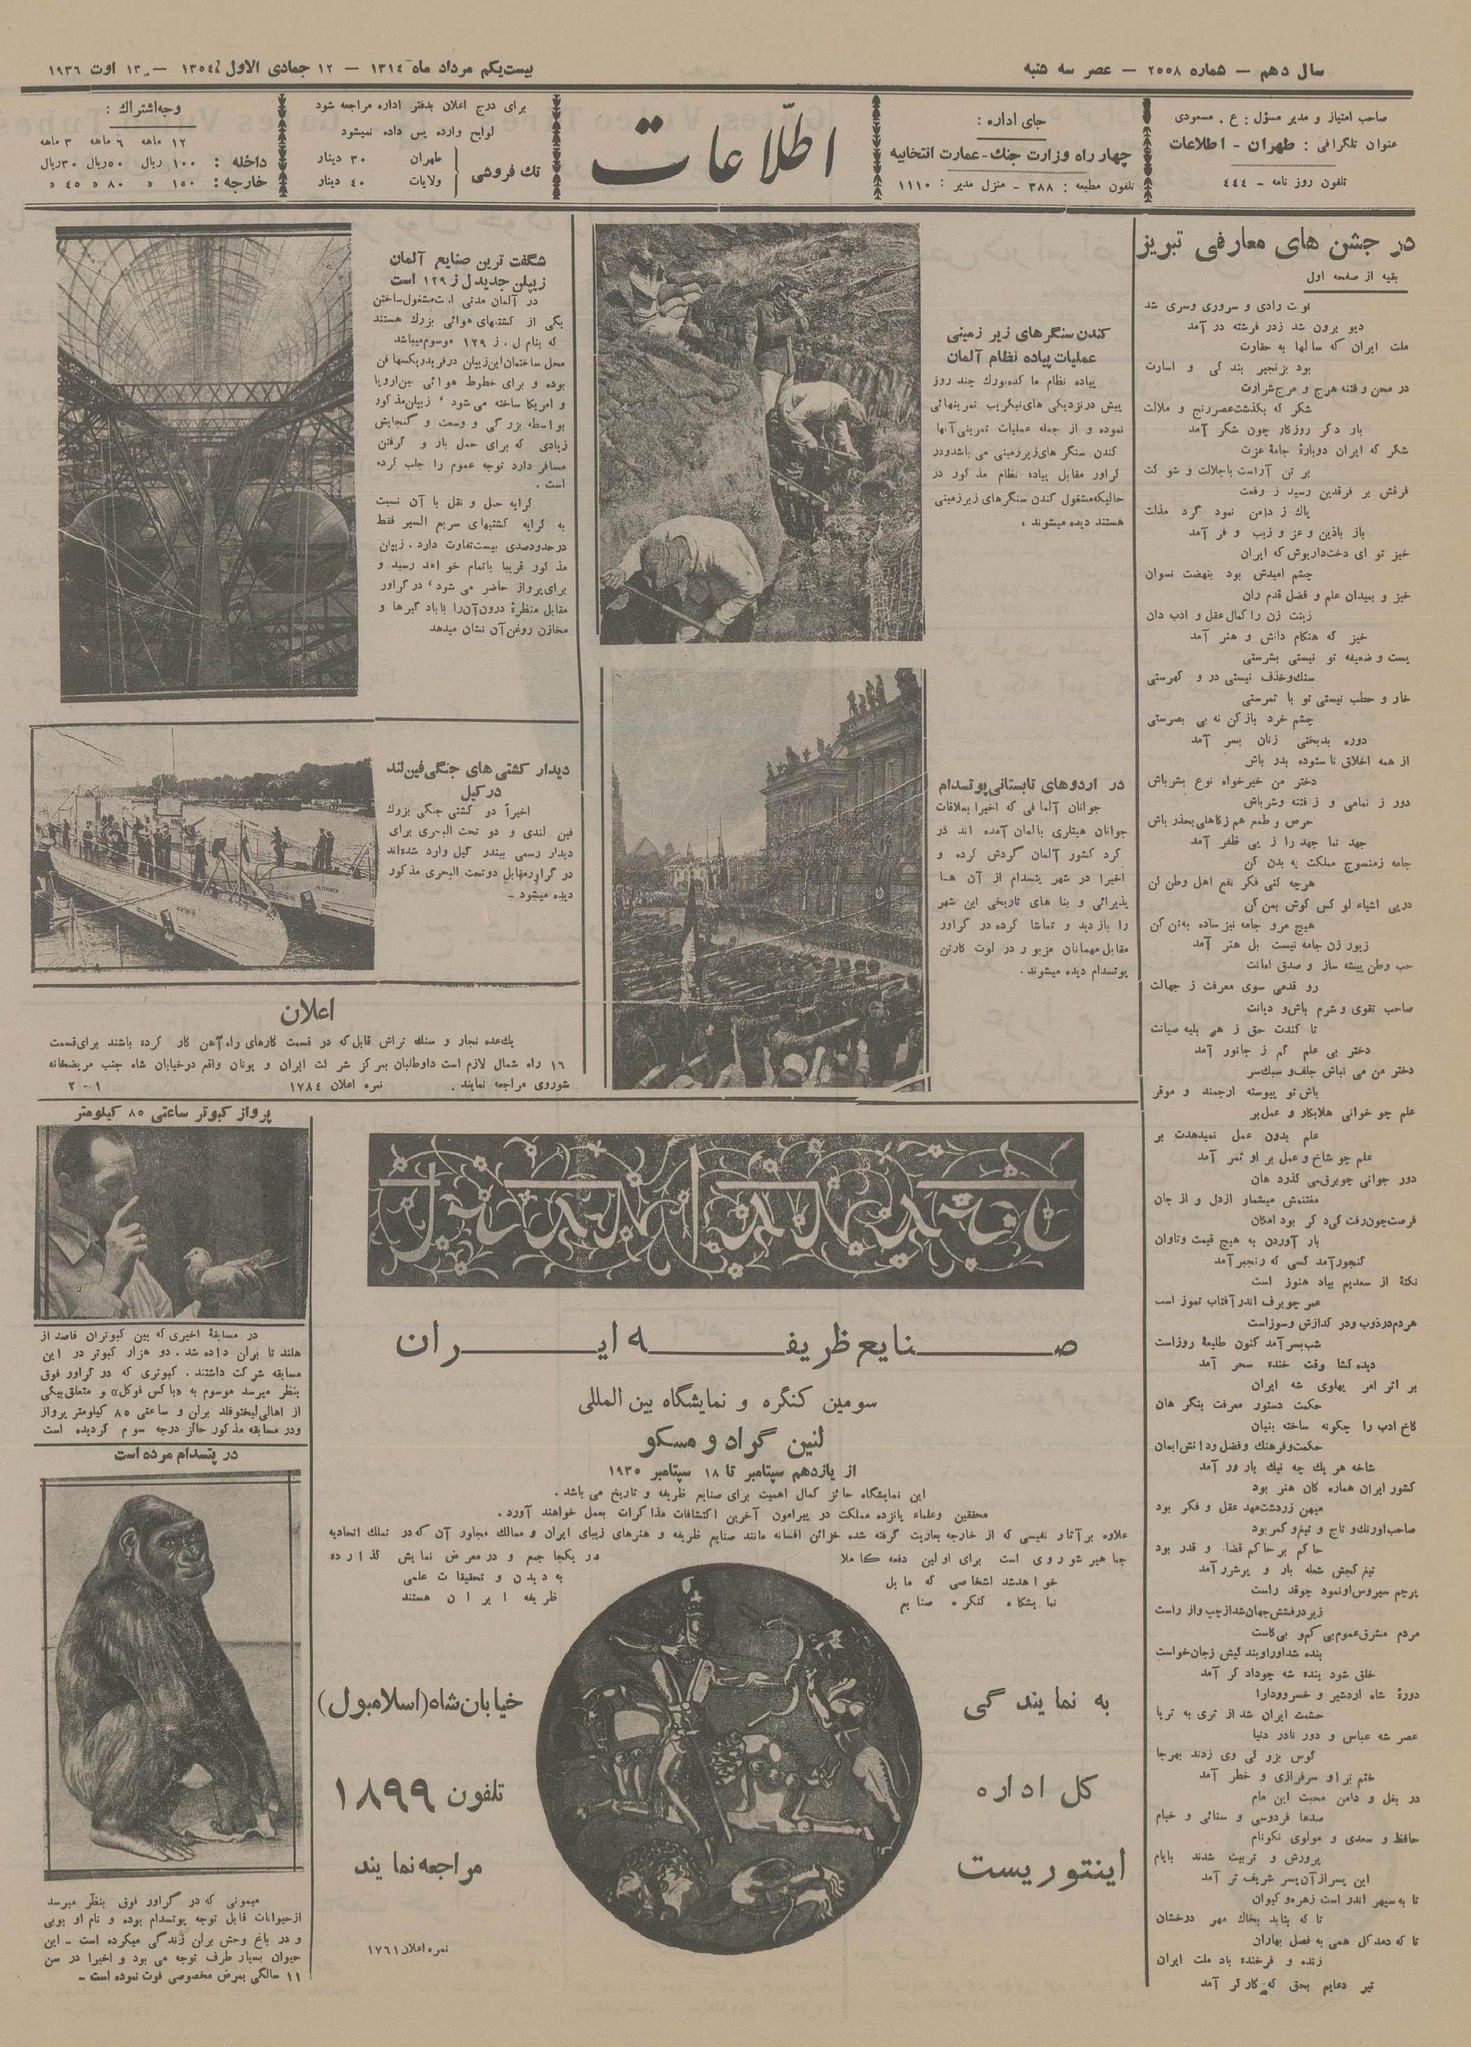 سال دهم – شماره ۲۰۰۸ – عصر سه شنبه
بیست‌یکم مرداد ماه ۱۳۱۴ – ۱۲ جمادی الاول ۱۳۵۴ – ۱۳ اوت ۱۹۳۶
صاحب امتیاز و مدیر مسؤل : ع . مسعودی
عنوان تلگرافی : طهران - اطلاعات
تلفون روز نامه – ٤٤٤
جای اداره :
چهار راه وزارت جنك - عمارت انتخابیه
تلفون مطبعه : ۳۸۸ - منزل مدیر : ۱۱۱۰
اطّلاعات
برای درج اعلان بدفتر اداره مراجعه شود
لوایح وارده پس داده نمیشود
تك فروشی
طهران ۳۰ دینار
ولایات ۴۰ دینار
وجه اشتراك :
۱۲ ماهه ۶ ماهه ۳ ماهه
داخله : ۱۰۰ ریال ۵۰ ریال ۳۰ ریال
خارجه : ۱۵۰ » ۸۰ » ۴۵ »
در جشن های معارفی تبریز
بقیه از صفحه اول
نوبت رادی و سروری وسری شد
دیو برون شد زدر فرشته در آمد
ملت ایران که سالها به حقارت
بود بزنجیر بندگی و اسارت
در محن و فتنه هرج و مرج شرارت
شکر که بگذشت عصر رنج و ملالت
بار دگر روزگار چون شکر آمد
شکر که ایران دوباره جامهٔ عزت
بر تن آراست باجلالت و شوکت
فرقش بر فرقدین رسید ز رفعت
پاك ز دامن نمود گرد مذلت
باز باذین و عز و زیب و فر آمد
خیز تو ای دخت داریوش که ایران
چشم امیدش بود بنهضت نسوان
خیز و بمیدان علم و فضل قدم ران
زینت زن را کمال عقل و ادب دان
خیز که هنگام دانش و هنر آمد
پست و ضعیفه تو نیستی بشرستی
سنك وخذف نیستی در و گهرستی
خار و حطب نیستی تو با ثمرستی
چشم خرد باز کن نه بی بصرستی
دوره بدبختی زنان بسر آمد
از همه اخلاق ناستوده بدر باش
دختر من خیرخواه نوع بشرباش
دور ز نمامی و ز فتنه وشرباش
حرص و طمع هم ز کاهلی بحذر باش
جهد نما جهد را ز پی ظفر آمد
جامه زمنسوج مملکت به بدن کن
هرچه کنی فکر نفع اهل وطن کن
درپی اشیاء لوکس گوش بمن کن
هیچ مرو جامه نیز ساده به‌تن کن
زیور زن جامه نیست بل هنر آمد
حب وطن پیشه ساز و صدق امانت
رو قدمی سوی معرفت ز جهالت
صاحب تقوی و شرم باش و دیانت
تا کندت حق ز هر بلیه صیانت
دختر بی علم کم ز جانور آمد
دختر من می نباش جلف و سبك‌سر
باش تو پیوسته ارجمند و موقر
علم چو خوانی هلابکار و عمل بر
علم بدون عمل نمیدهدت بر
علم چو شاخ و عمل بر او ثمر آمد
دور جوانی چو برق می گذرد هان
مغتنمش میشمار ازدل و از جان
فرصت چون رفت کی دگر بود امکان
باز آوردن به هیچ قیمت وتاوان
گنجور آمد کسی که رنجبر آمد
نکتهٔ از سعدیم بیاد هنوز است
عمر چو برف اندر آفتاب تموز است
هردم در ذوب ودر گدازش وسوزاست
شب بسر آمد کنون طلیعهٔ روزاست
دیده گشا وقت خنده سحر آمد
بر اثر امر پهلوی شه ایران
حکمت دستور معرفت بنگر هان
کاخ ادب را چگونه ساخته بنیان
حکمت و فرهنك و فضل و دانش ایمان
شاخه هر یك چه نیك بارور آمد
کشور ایران هماره کان هنر بود
میهن زردشت مهد عقل و فکر بود
صاحب اورنك و تاج و تیغ و کمر بود
حاکم بر حاکم قضا و قدر بود
تیغ کجش شعله بار و پرشرر آمد
پرچم سیروس او نمود چو قد راست
زیر درفشش جهان شد از چپ و از راست
مردم مشرق عموم بی کم و بی کاست
بنده شد او را و بندگیش ز جان خواست
خلق شود بنده شه چو دادگر آمد
دورهٔ شاه اردشیر و خسرو و دارا
حشمت ایران شد از ثری به ثریا
عصر شه عباس و دور نادر دنیا
کوس بزرگی وی زدند بهرجا
ختم بر او سرفرازی و خطر آمد
در بغل و دامن محبت این مام
صدها فردوسی و سنائی و خیام
حافظ و سعدی و مولوی نکونام
پرورش و تربیت شدند بایام
این پسر از آن پسر شریف تر آمد
تا به سپهر اندر است زهره و کیوان
تا که بتابد بخاك مهر درخشان
تا که دمد گل همی به فصل بهاران
زنده و فرخنده باد ملت ایران
تیر دعایم بحق که کارگر آمد
کندن سنگرهای زیر زمینی
عملیات پیاده نظام آلمان
پیاده نظام ما کده‌بورك چند روز
پیش در نزدیکی های نیگریب تمرینهائی
نموده و از جمله عملیات تمرینی آنها
کندن سنگر های زیرزمینی می باشد و در
گراور مقابل پیاده نظام مذکور در
حالیکه مشغول کندن سنگرهای زیرزمینی
هستند دیده میشوند .
در اردوهای تابستانی پوتسدام
جوانان آلمانی که اخیرا بملاقات
جوانان هیتلری بالمان آمده اند در
گرد کشور آلمان گردش کرده و
اخیرا در شهر پتسدام از آن ها
پذیرائی و بنا های تاریخی این شهر
را بازدید و تماشا کرده در گراور
مقابل مهمانان مزبور در لوت گارتن
پوتسدام دیده میشوند .
شگفت ترین صنایع آلمان
زیپلن جدید ل ز ۱۲۹ است
در آلمان مدتی است مشغول ساختن
یکی از کشتیهای هوائی بزرك هستند
که بنام ل . ز ۱۲۹ موسوم میباشد
محل ساختمان این زیپلن در فریدریکسهافن
بوده و برای خطوط هوائی بین اروپا
و امریکا ساخته می شود ، زیپلن مذکور
بواسطه بزرگی و وسعت و گنجایش
زیادی که برای حمل بار و گرفتن
مسافر دارد توجه عموم را جلب کرده
است .
کرایه حمل و نقل با آن نسبت
به کرایه کشتیهای سریع السیر فقط
در حدود صدی بیست تفاوت دارد . زیپلن
مذکور قریبا باتمام خواهد رسید و
برای پرواز حاضر می شود ، در گراور
مقابل منظرهٔ درون آن را با بادگیرها و
مخازن روغن آن نشان میدهد
دیدار کشتی های جنگی فین لند
در کیل
اخیرآ دو کشتی جنگی بزرك
فین لندی و دو تحت البحری برای
دیدار رسمی ببندر کیل وارد شده‌اند
در گراور مقابل دو تحت البحری مذکور
دیده میشود –
اعلان
یك‌عده نجار و سنك تراش قابل که در قسمت کارهای راه آهن کار کرده باشند برای قسمت
۱۶ راه شمال لازم است داوطلبان بمرکز شرکت ایران و یونان واقع در خیابان شاه جنب مریضخانه
شوروی مراجعه نمایند . نمره اعلان ۱۷۸۴ ۲-۱
پرواز کبوتر ساعتی ۸۵ کیلومتر
در مسابقهٔ اخیری که بین کبوتران قاصد از
هلند تا برلن داده شد . دو هزار کبوتر در این
مسابقه شرکت داشتند . کبوتری که در گراور فوق
بنظر میرسد موسوم به «باکس فوکل» و متعلق بیکی
از اهالی لیختوفلد برلن و ساعتی ۸۵ کیلومتر پرواز
ودر مسابقه مذکور حائز درجه سوم گردیده است
در پتسدام مرده است
میمونی که در گراور فوق بنظر میرسد
از حیوانات قابل توجه پوتسدام بوده و نام او بوبی
و در باغ وحش برلن زندگی میکرده است – این
حیوان بسیار طرف توجه می بود و اخیرا در سن
۱۱ سالگی بمرض مخصوصی فوت نموده است –
صنایع ظریفه ایران
سومین کنگره و نمایشگاه بین المللی
لنین گراد و مسکو
از یازدهم سپتامبر تا ۱۸ سپتامبر ۱۹۳۵
این نمایشگاه حائز کمال اهمیت برای صنایع ظریفه و تاریخ می باشد .
محققین و علماء پانزده مملکت در پیرامون آخرین اکتشافات مذاکرات بعمل خواهند آورد .
علاوه بر آثار نفیسی که از خارجه بعاریت گرفته شده خزائن افسانه مانند صنایع ظریفه و هنرهای زیبای ایران و ممالك مجاور آن که در تملك اتحادیه
جماهیر شوروی است برای اولین دفعه کاملا در یکجا جمع و در معرض نمایش گذارده
خواهدشد اشخاصی که مایل به دیدن و تحقیقات علمی
نمایشگاه کنگره صنایع ظریفه ایران هستند
به نمایندگی
کل اداره
اینتوریست
خیابان شاه (اسلامبول)
تلفون ۱۸۹۹
مراجعه نمایند
نمره اعلان ۱۷۶۱